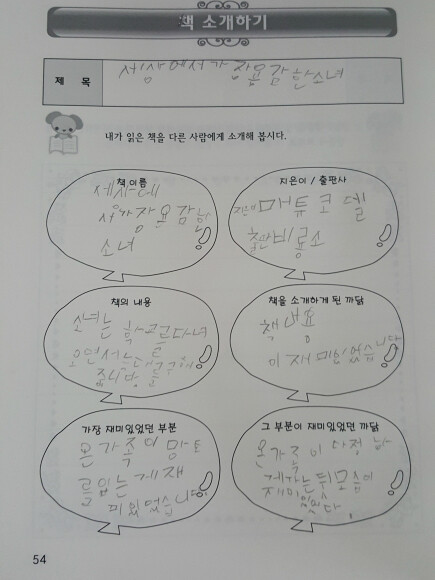 책 소개하기
제 목
세상에서가장용감한소녀
내가 읽은 책을 다른 사람에게 소개해 봅시다.
책 이름
서가장용감한
소녀
지은이 / 출판사
매튜코델
출판비룡소
책의 내용
소녀는 학교를다녀
오면서
책을 소개하게 된 까닭
책내용
이재미있었습니다
가장 재미있었던 부분
온가족이 망토
를입는게재
미있었습니다
그 부분이 재미있었던 까닭
온가족이 다정하
게자는뒤모습이
재미있었다.
54